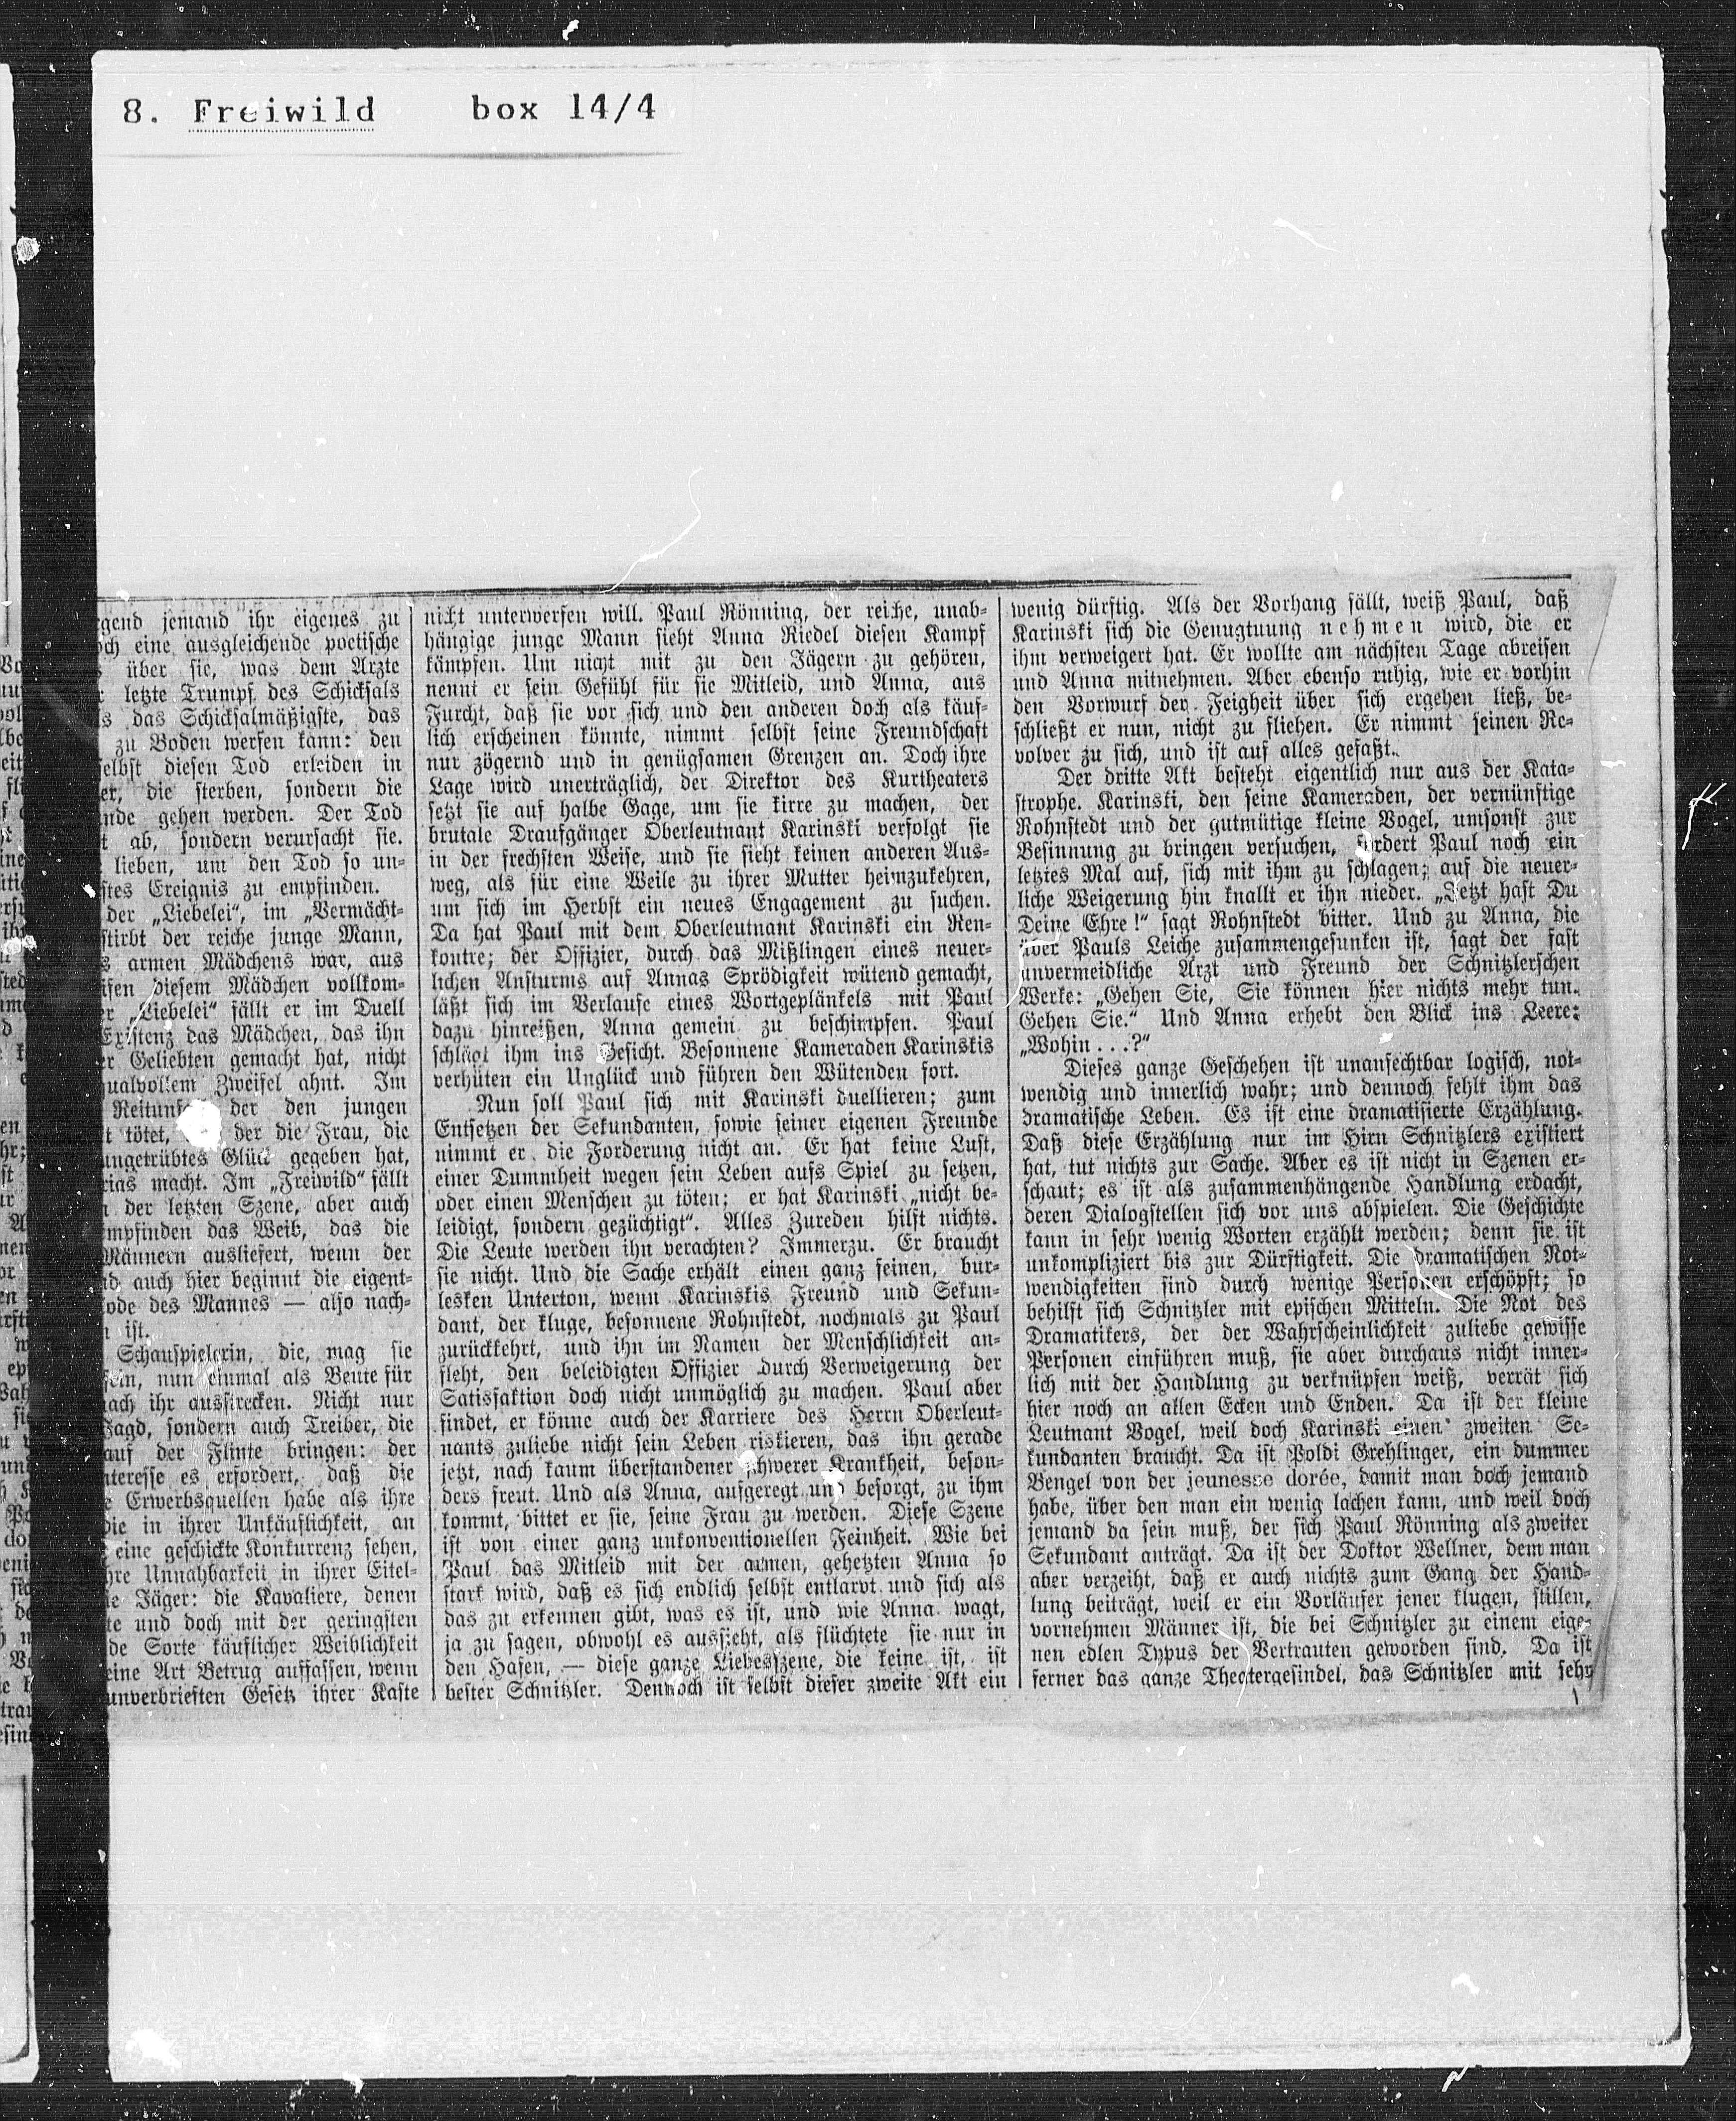 8. Freiwild box 14/4
jemand ihr eigenes zu
eine ausgleichende poetische
über sie, was dem Arzte
letzte Trumpf des Schicksals
das Schicksalmäßigste, das
zu Boden werfen kann: den
diesen Tod erleiden in
die sterben, sondern die
gehen werden. Der Tod
ab, sondern verursacht sie.
lieben, um den Tod so un-
Ereignis zu empfinden.
der „Liebelei“, im „Vermächt-
stirbt der reiche junge Mann,
armen Mädchens war, aus
diesem Mädchen vollkom-
Liebelei“ fällt er im Duell
Existenz das Mädchen, das ihn
Geliebten gemacht hat, nicht
qualvollem Zweifel ahnt. Im
der den jungen
tötet, der die Frau, die
ungetrübtes Glück gegeben hat,
macht. Im „Freiwild“ fällt
der letzten Szene, aber auch
empfinden das Weib, das die
Männern ausliefert, wenn der
auch hier beginnt die eigent-
des Mannes — also nach-
ist.
Schauspielerin, die, mag sie
sein, nun einmal als Beute für
nach ihr ausstrecken. Nicht nur
Jagd, sondern auch Treiber, die
auf der Flinte bringen: der
Interesse es erfordert, daß die
Erwerbsquellen habe als ihre
die in ihrer Unkäuflichkeit, an
eine geschickte Konkurrenz sehen,
ihre Unnahbarkeit in ihrer Eitel-
Jäger: die Kavaliere, denen
und doch mit der geringsten
Sorte käuflicher Weiblichkeit
eine Art Betrug auffassen, wenn
unverbrieften Gesetz ihrer Kaste
nicht unterwerfen will. Paul Rönning, der reiche, unab-
hängige junge Mann sieht Anna Riedel diesen Kampf
kämpfen. Um nicht mit zu den Jägern zu gehören,
nennt er sein Gefühl für sie Mitleid, und Anna, aus
Furcht, daß sie vor sich und den anderen doch als käuf-
lich erscheinen könnte, nimmt selbst seine Freundschaft
nur zögernd und in genügsamen Grenzen an. Doch ihre
Lage wird unerträglich, der Direktor des Kurtheaters
setzt sie auf halbe Gage, um sie kirre zu machen, der
brutale Draufgänger Oberleutnant Karinski verfolgt sie
in der frechsten Weise, und sie sieht keinen anderen Aus-
weg, als für eine Weile zu ihrer Mutter heimzukehren,
um sich im Herbst ein neues Engagement zu suchen.
Da hat Paul mit dem Oberleutnant Karinski ein Ren-
kontre; der Offizier, durch das Mißlingen eines neuer-
lichen Ansturms auf Annas Sprödigkeit wütend gemacht,
läßt sich im Verlaufe eines Wortgeplänkels mit Paul
dazu hinreißen, Anna gemein zu beschimpfen. Paul
schlägt ihm ins Gesicht. Besonnene Kameraden Karinskis
verhüten ein Unglück und führen den Wütenden fort.
Nun soll Paul sich mit Karinski duellieren; zum
Entsetzen der Sekundanten, sowie seiner eigenen Freunde
nimmt er die Forderung nicht an. Er hat keine Lust,
einer Dummheit wegen sein Leben aufs Spiel zu setzen,
oder einen Menschen zu töten; er hat Karinski „nicht be-
leidigt, sondern gezüchtigt“. Alles Zureden hilft nichts.
Die Leute werden ihn verachten? Immerzu. Er braucht
sie nicht. Und die Sache erhält einen ganz feinen, bur-
lesken Unterton, wenn Karinskis Freund und Sekun-
dant, der kluge, besonnene Rohnstedt, nochmals zu Paul
zurückkehrt, und ihn im Namen der Menschlichkeit an-
fleht, den beleidigten Offizier durch Verweigerung der
Satisfaktion doch nicht unmöglich zu machen. Paul aber
findet, er könne auch der Karriere des Herrn Oberleut-
nants zuliebe nicht sein Leben riskieren, das ihn gerade
jetzt, nach kaum überstandener schwerer Krankheit, beson-
ders freut. Und als Anna, aufgeregt und besorgt, zu ihm
kommt, bittet er sie, seine Frau zu werden. Diese Szene
ist von einer ganz unkonventionellen Feinheit. Wie bei
Paul das Mitleid mit der armen, gehetzten Anna so
stark wird, daß es sich endlich selbst entlarvt und sich als
das zu erkennen gibt, was es ist, und wie Anna wagt,
ja zu sagen, obwohl es aussieht, als flüchtete sie nur in
den Hafen, — diese ganze Liebesszene, die keine ist, ist
bester Schnitzler. Dennoch ist selbst dieser zweite Akt ein
wenig dürftig. Als der Vorhang fällt, weiß Paul, daß
Karinski sich die Genugtuung nehmen wird, die er
ihm verweigert hat. Er wollte am nächsten Tage abreisen
und Anna mitnehmen. Aber ebenso ruhig, wie er vorhin
den Vorwurf der Feigheit über sich ergehen ließ, be-
schließt er nun, nicht zu fliehen. Er nimmt seinen Re-
volver zu sich, und ist auf alles gefaßt.
Der dritte Akt besteht eigentlich nur aus der Kata-
strophe. Karinski, den seine Kameraden, der vernünftige
Rohnstedt und der gutmütige kleine Vogel, umsonst zur
Besinnung zu bringen versuchen, fordert Paul noch ein
letztes Mal auf, sich mit ihm zu schlagen; auf die neuer-
liche Weigerung hin knallt er ihn nieder. „Jetzt hast Du
Deine Ehre!“ sagt Rohnstedt bitter. Und zu Anna, die
über Pauls Leiche zusammengesunken ist, sagt der fast
unvermeidliche Arzt und Freund der Schnitzlerschen
Werke: „Gehen Sie, Sie können hier nichts mehr tun.
Gehen Sie.“ Und Anna erhebt den Blick ins Leere:
„Wohin . . .?“
Dieses ganze Geschehen ist unanfechtbar logisch, not-
wendig und innerlich wahr; und dennoch fehlt ihm das
dramatische Leben. Es ist eine dramatisierte Erzählung.
Daß diese Erzählung nur im Hirn Schnitzlers existiert
hat, tut nichts zur Sache. Aber es ist nicht in Szenen er-
schaut; es ist als zusammenhängende Handlung erdacht,
deren Dialogstellen sich vor uns abspielen. Die Geschichte
kann in sehr wenig Worten erzählt werden; denn sie ist
unkompliziert bis zur Dürftigkeit. Die dramatischen Not-
wendigkeiten sind durch wenige Personen erschöpft; so
behilft sich Schnitzler mit epischen Mitteln. Die Not des
Dramatikers, der der Wahrscheinlichkeit zuliebe gewisse
Personen einführen muß, sie aber durchaus nicht inner-
lich mit der Handlung zu verknüpfen weiß, verrät sich
hier noch an allen Ecken und Enden. Da ist der kleine
Leutnant Vogel, weil doch Karinski einen zweiten Se-
kundanten braucht. Da ist Poldi Grehlinger, ein dummer
Bengel von der jeunesse dorée, damit man doch jemand
habe, über den man ein wenig lachen kann, und weil doch
jemand da sein muß, der sich Paul Rönning als zweiter
Sekundant anträgt. Da ist der Doktor Wellner, dem man
aber verzeiht, daß er auch nichts zum Gang der Hand-
lung beiträgt, weil er ein Vorläufer jener klugen, stillen,
vornehmen Männer ist, die bei Schnitzler zu einem eige-
nen edlen Typus der Vertrauten geworden sind. Da ist
ferner das ganze Theatergesindel, das Schnitzler mit sehr